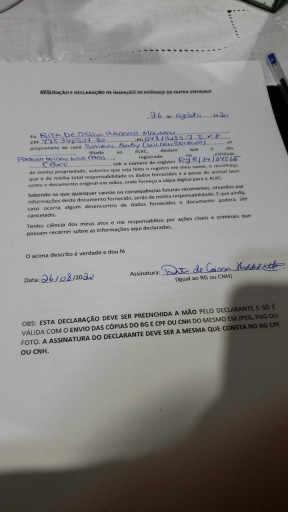 DECLARAÇÃO DE INSERÇÃO DE PEDIGREE DE OUTRA ENTIDADE
26 de agosto, 2020
Eu RITA DE
CPF
proprietário do canil
filiado ao ALKC, declaro que o cão
registrado na entidade
CBKC sob o número de registro
de minha propriedade, autorizo que seja feito o registro em meu nome, e reconheço
que é de minha total responsabilidade os dados fornecidos e a posse do animal bem
como o documento original em mãos, onde forneço a cópia digital para o ALKC.
Sabendo se que quaisquer causas ou consequências futuras recorrentes, oriundos por
informações deste documento fornecido, serão de minha responsabilidade. E que ainda,
caso ocorra algum desencontro de dados fornecidos o documento poderá ser
cancelado.
Tenho ciência dos meus atos e me responsabilizo por ações cíveis e criminais que
possam recorrer sobre as informações aqui declaradas.
O acima descrito é verdade e dou fé
Data: 26/08/2020 Assinatura: Rita de Cassia
(igual ao RG ou CNH)
OBS: ESTA DECLARAÇÃO DEVE SER PREENCHIDA A MÃO PELO DECLARANTE E SÓ É
VÁLIDA COM O ENVIO DAS CÓPIAS DO RG E CPF OU CNH DO MESMO EM JPEG, PNG OU
FOTO. A ASSINATURA DO DECLARANTE DEVE SER A MESMA QUE CONSTA NO RG CPF
OU CNH.